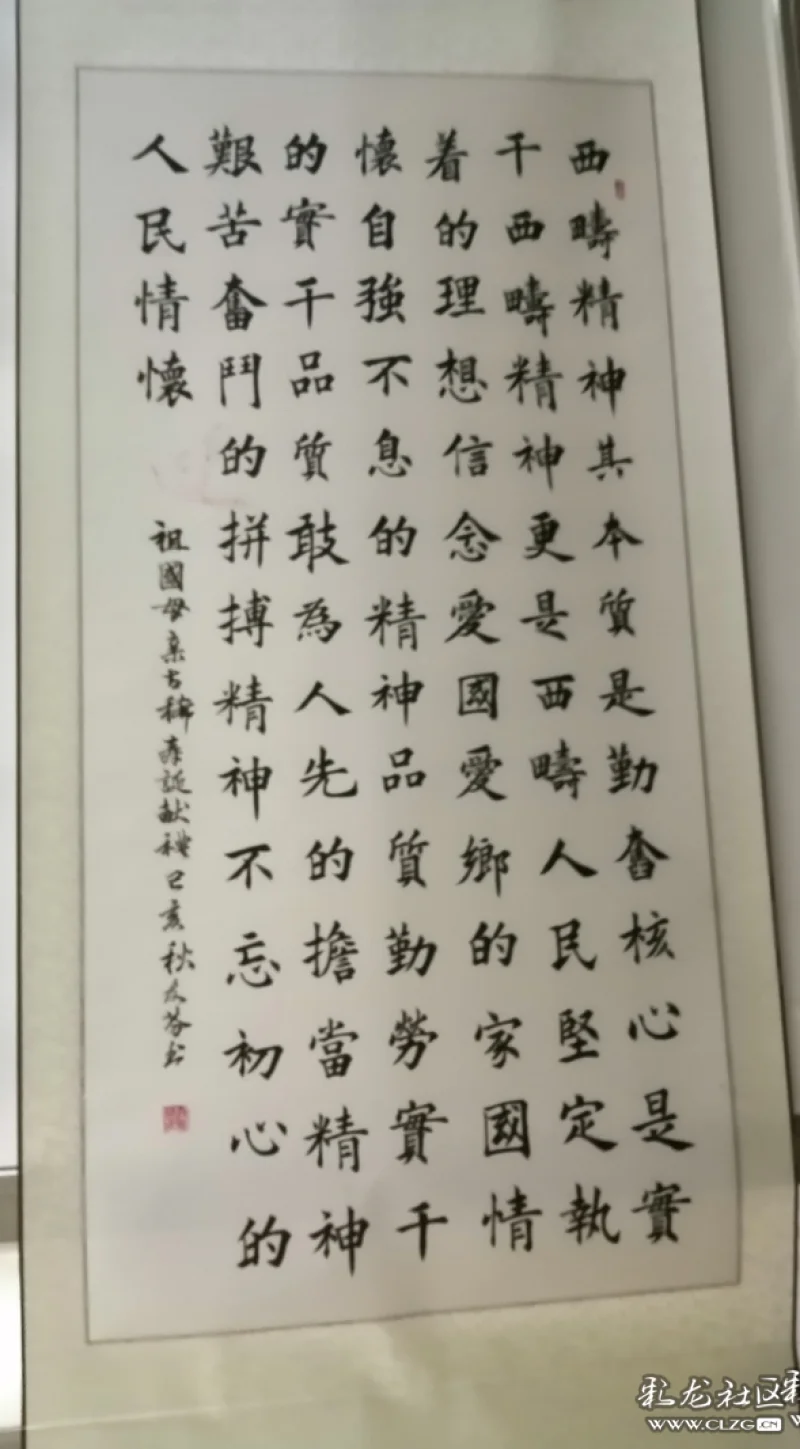 西疇精神其本質是勤奮核心是實
干西疇精神更是西疇人民堅定執
着的理想信念愛國愛鄉的家國情
懷自強不息的精神品質勤勞實干
的實干品質敢為人先的擔當精神
艱苦奮鬥的拼搏精神不忘初心的
人民情懷
祖國母亲古稀華誕献禮己亥秋
彩龙社区
WWW.CLZG.CN